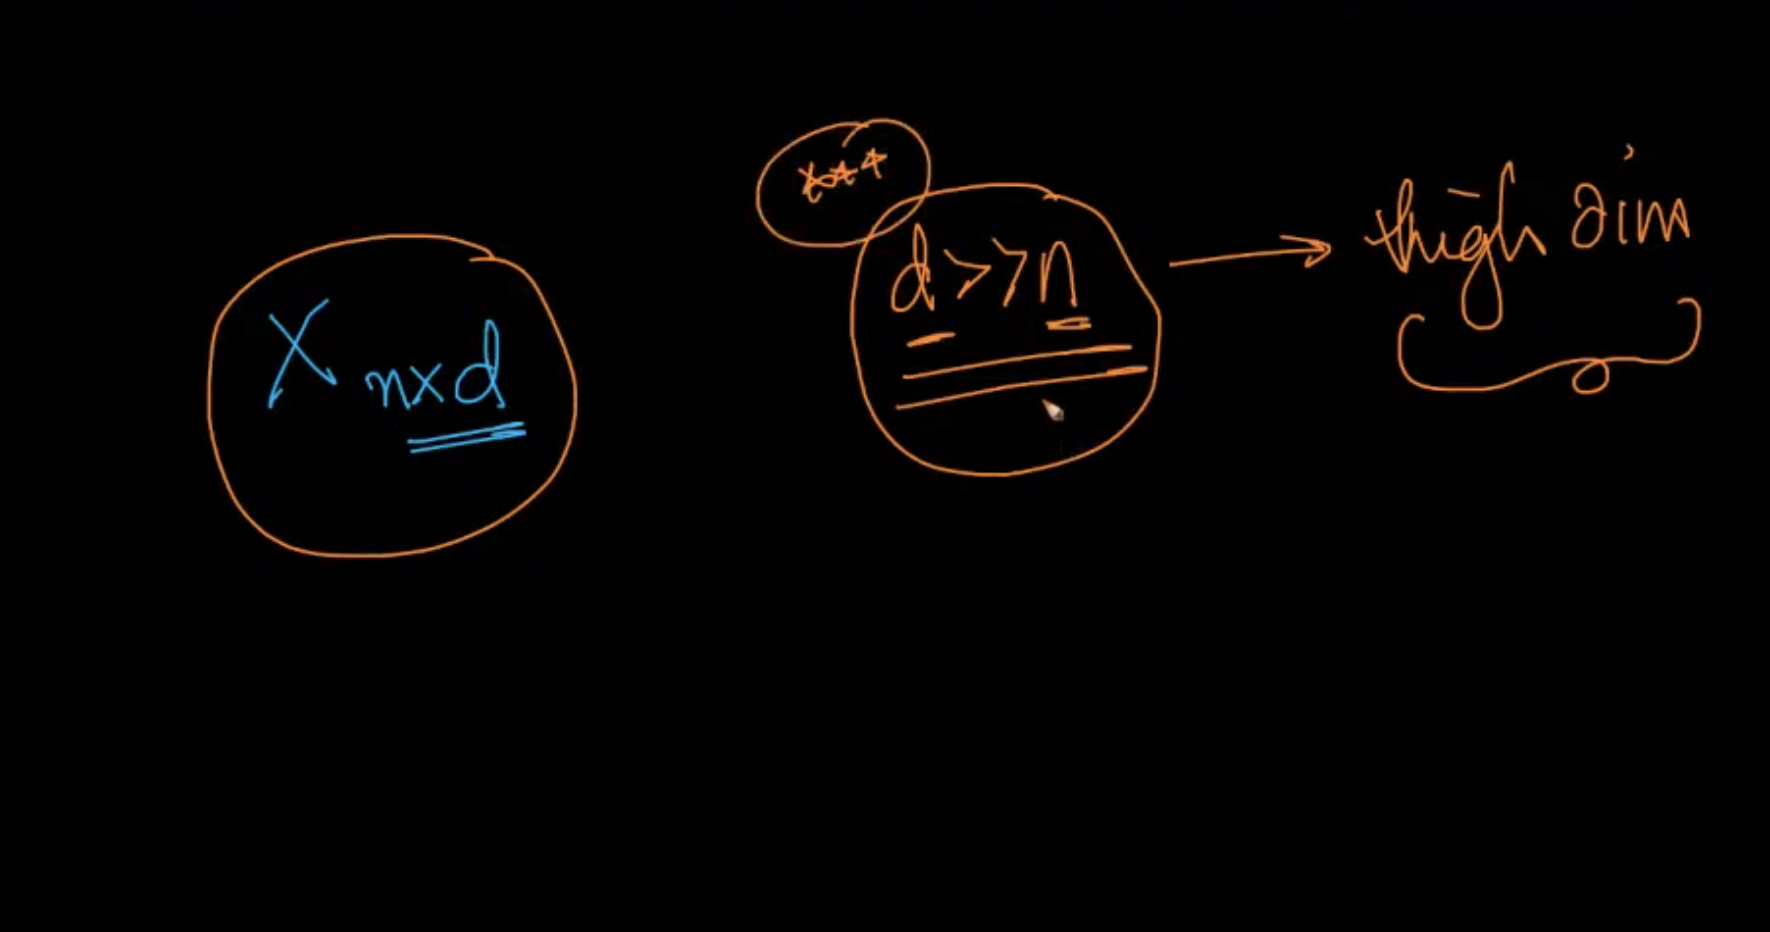 X n×d
***
d>>n → high dim